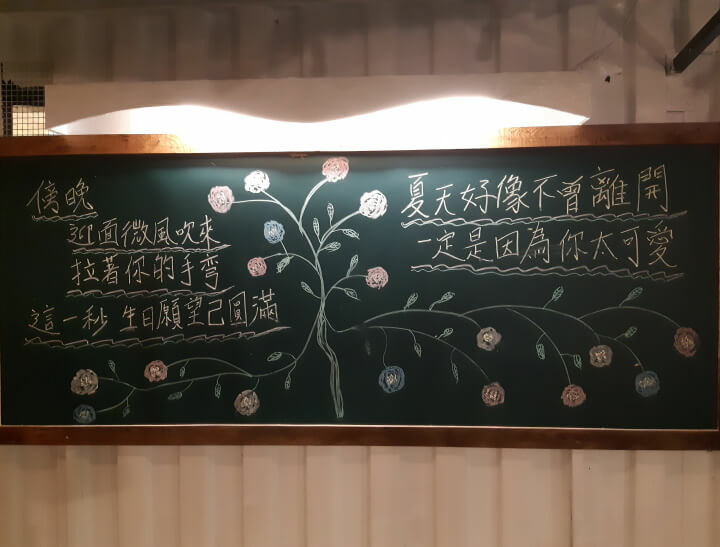 傍晚
迎面微風吹來
拉著你的手彎
這一秒 生日願望已圓滿
夏天好像不曾離開
一定是因為你太可愛